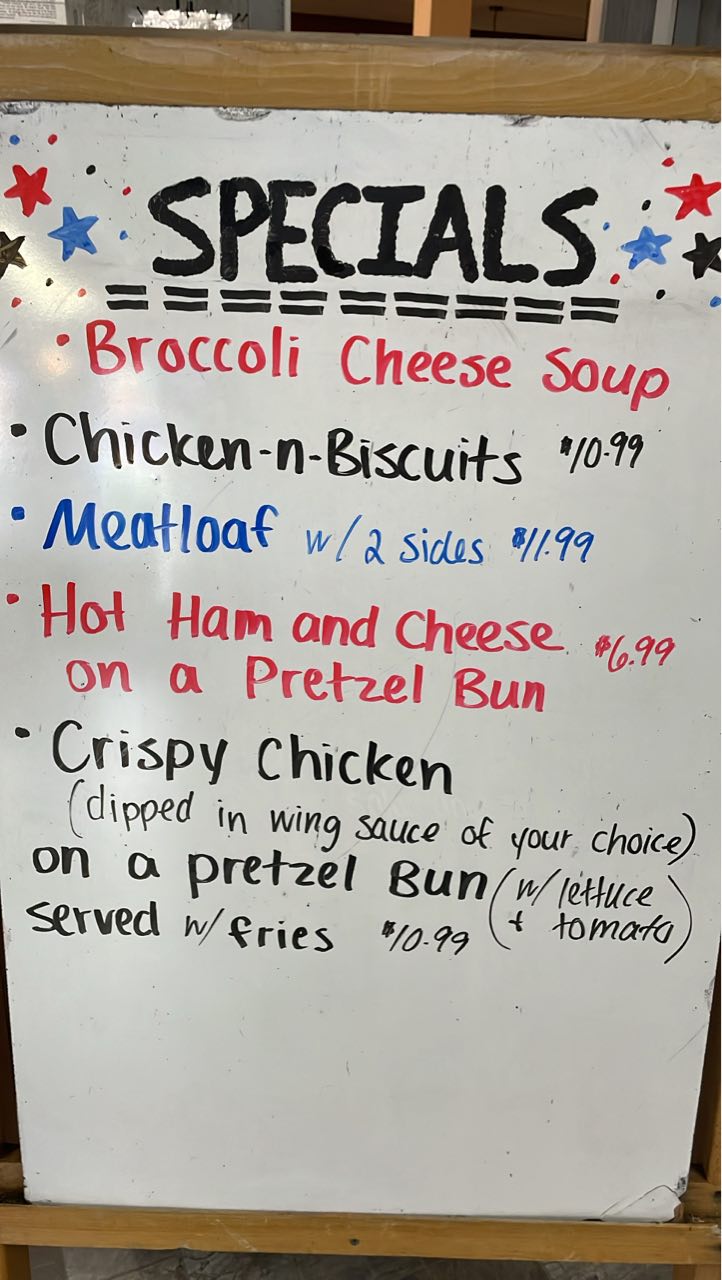 SPECIALS
• Broccoli Cheese Soup
• Chicken-n-Biscuits $10.99
• Meatloaf w/ 2 sides $11.99
• Hot Ham and Cheese $6.99
on a Pretzel Bun
• Crispy Chicken
(dipped in wing sauce of your choice)
on a pretzel Bun (w/ lettuce
+ tomato)
served w/ fries $10.99